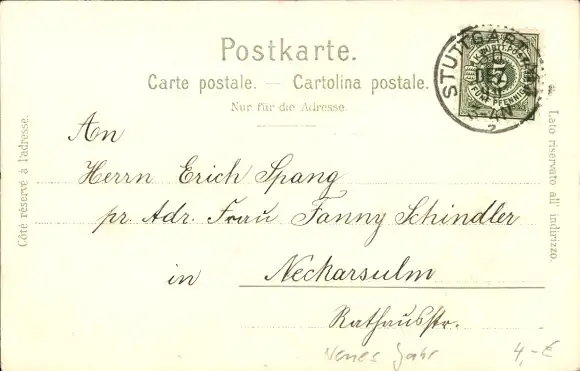 Postkarte.
Carte postale. — Cartolina postale.
Nur für die Adresse.
STUTTGART
K. WÜRTT. POST
5
FÜNF PFENNIG
DEZ
2
Côté réservé à l'adresse.
Lato riservato all' indirizzo.
An
Herrn Erich Spang
pr. Adr. Frau Fanny Schindler
in Neckarsulm
Rathausstr.
Neues Jahr
4,-€